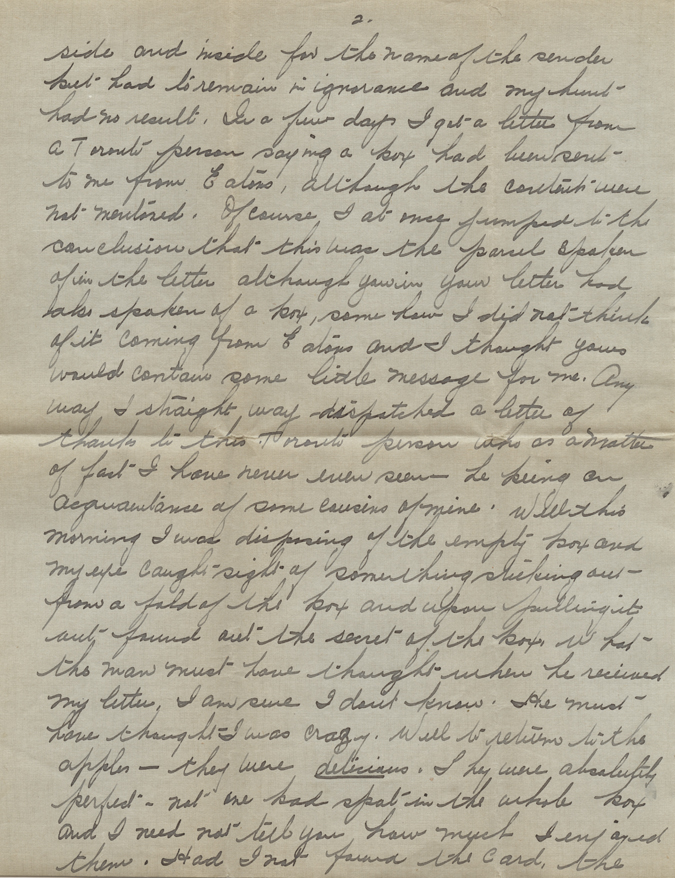 2.
side and inside for the name of the sender
but had to remain in ignorance and my hunt
had no result. In a few days I got a letter from
a Toronto person saying a box had been sent
to me from Eatons, although the contents were
not mentioned. Of course, I at once jumped to the
conclusion that this was the parcel spoken
of in the letter although you in your letter had
also spoken of a box, some how I did not think
of it coming from Eatons and I thought yours
would contain some little message for me. Any
way I straight way dispatched a letter of
thanks to this Toronto person who as a matter
of fact I have never even seen — he being an
acquaintance of some cousins of mine. Well this
morning I was disposing of the empty box and
my eye caught sight of something sticking out
from a fold of the box and upon pulling it
out found out the secret of the box. What
the man must have thought when he received
my letter, I am sure I dont know. He must
have thought I was crazy. Well to return to the
apples — they were delicious. They were absolutely
perfect - not one bad spot in the whole box
and I need not tell you how much I enjoyed
them. Had I not found the card, the